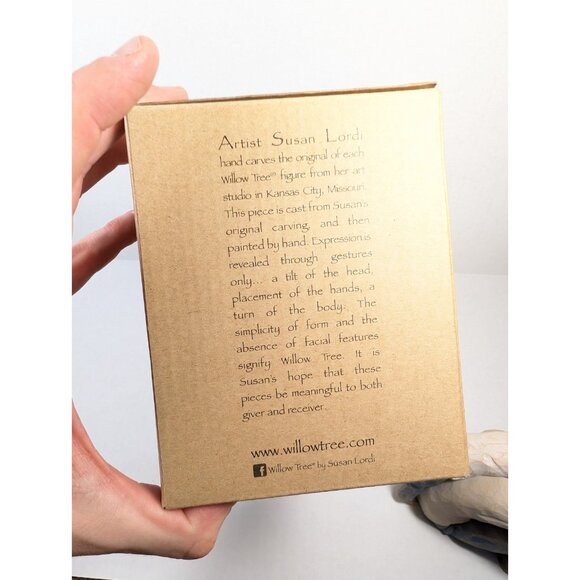 Artist Susan Lordi
hand carves the original of each
Willow Tree® figure from her art
studio in Kansas City, Missouri.
This piece is cast from Susan's
original carving, and then
painted by hand. Expression is
revealed through gestures
only... a tilt of the head,
placement of the hands, a
turn of the body. The
simplicity of form and the
absence of facial features
signify Willow Tree. It is
Susan's hope that these
pieces be meaningful to both
giver and receiver.
www.willowtree.com
f Willow Tree® by Susan Lordi